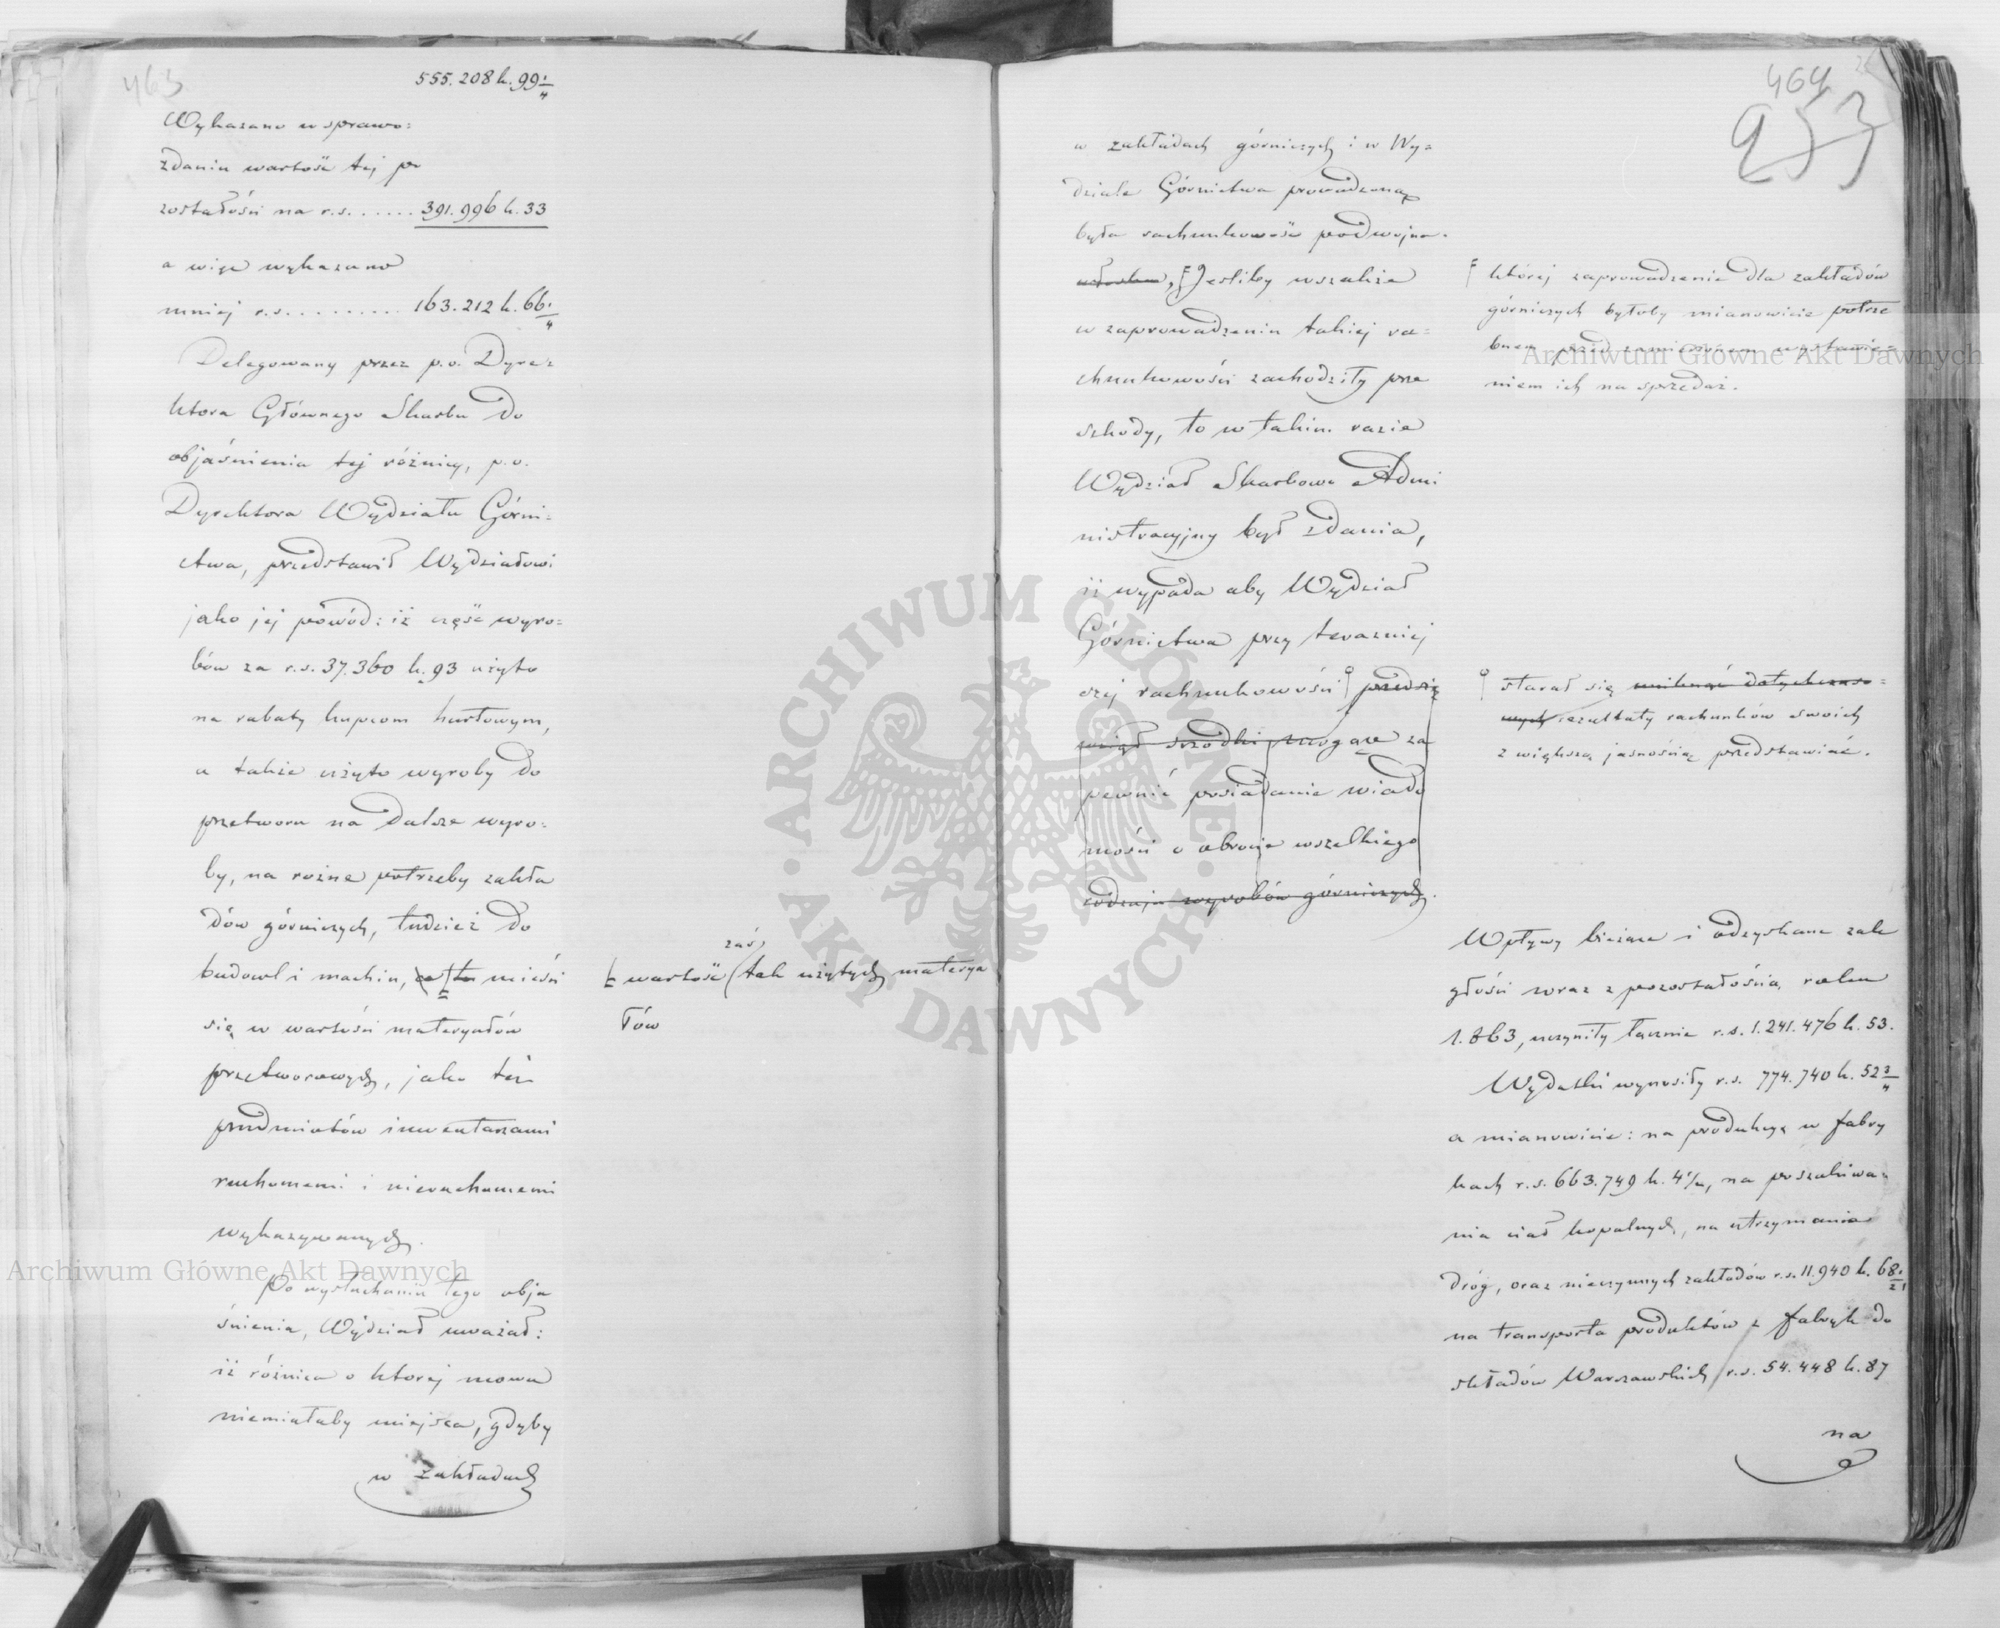 463
555.208 k. 99 1/4
Wykazano w sprawo=
zdaniu wartość tej po
zostałości na r.s. . . . . . 391.996 k. 33
a więc wykazano
mniej r.s. . . . . . . . . . 163.212 k. 66 1/4
Delegowany przez p.o. Dyre=
ktora Głównego Skarbu do
objaśnienia tej różnicy, p.o.
Dyrektora Wydziału Górni=
ctwa, przedstawił Wydziałowi
jako jej powód: iż część wyro=
bów za r.s. 37.360 k. 93 użyto
na rabaty kupcom hurtowym,
a także użyto wyroby do
przetworu na dalsze wyro=
by, na rożne potrzeby zakła
dów górniczych, tudzież do
budowl i machin, mieści
się w wartości materyałów
przetworowych, jako też
przedmiotów inwentarzami
ruchomemi i nieruchomemi
wykazywanych.
Po wysłuchaniu tego obja
śnienia, Wydział uważał:
iż różnica o ktorej mowa
niemiałaby miejsca, gdyby
w zakładach
zaś
wartość (tak użytych materya
łów
464
253
w zakładach górniczych i w Wy=
dziale Górnictwa prowadzoną
była rachunkowość podwojna.
Jesliby wszakże
w zaprowadzeniu takiej ra=
chunkowości zachodziły prze
szkody, to w takim razie
Wydział Skarbowo Admi
nistracyjny był zdania,
iż wypada aby Wydział
Górnictwa przy terazniej
szej rachunkowości przedsię
wziął srzodki mogące za
pewnić posiadanie wiado
mości o obrocie wszelkiego
rodzaju wyrobów górniczych.
której zaprowadzenie dla zakładów
górniczych byłoby mianowicie potrze
bnem przed zamierzonem wystawie=
niem ich na sprzedaż.
starał się uniknąć dotychczaso=
wych rezultaty rachunków swoich
z większą jasnością przedstawiać.
Wpływy bieżące i odzyskane zale
głości wraz z pozostałością roku
1.863, uczyniły łącznie r.s. 1.241.476 k. 53.
Wydatki wynosiły r.s. 774.740 k. 52 3/4
a mianowicie: na produkcyę w fabry
kach r.s. 663.749 k. 4 1/4, na poszukiwa=
nia ciał kopalnych, na utrzymanie
dróg, oraz nieczynnych zakładów r.s. 11.940 k. 68 1/2
na transporta produktów z fabryk do
składów Warszawskich r.s. 54.448 k. 87
na
ARCHIWUM GŁÓWNE AKT DAWNYCH
Archiwum Główne Akt Dawnych
Archiwum Główne Akt Dawnych